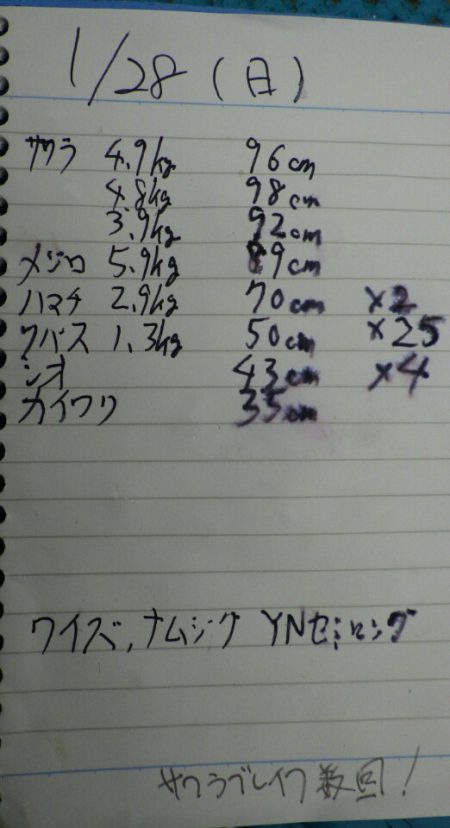 1/28（日）
サワラ 4.9kg 96cm
4.8kg 98cm
3.9kg 92cm
メジロ 5.9kg 89cm
ハマチ 2.9kg 70cm ×2
ツバス 1.3kg 50cm ×25
シオ 43cm ×4
カイワリ 35cm
ワイズ,ナムジグ YNセミロング
サワラブレイク数回!